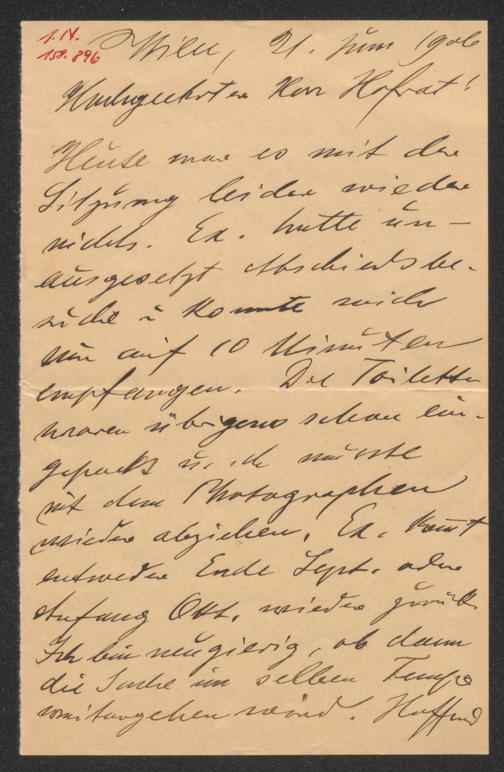 1. IV.
158.896
Wien, 21. Juni 1906
Hochgeehrter Herr Hofrat!
Heute war es mit der
Sitzung leider wieder
nichts. Ex. hatte un-
ausgesetzt Abschiedsbe-
suche u konnte mich
nur auf 10 Minuten
empfangen. Die Toiletten
waren übrigens schon ein-
gepackt u. ich musste
mit dem Photographen
wieder abziehen. Ex. kommt
entweder Ende Sept. oder
Anfang Okt. wieder zurück.
Ich bin neugierig, ob dann
die Sache im selben Tempo
weitergehen wird. Hoffend